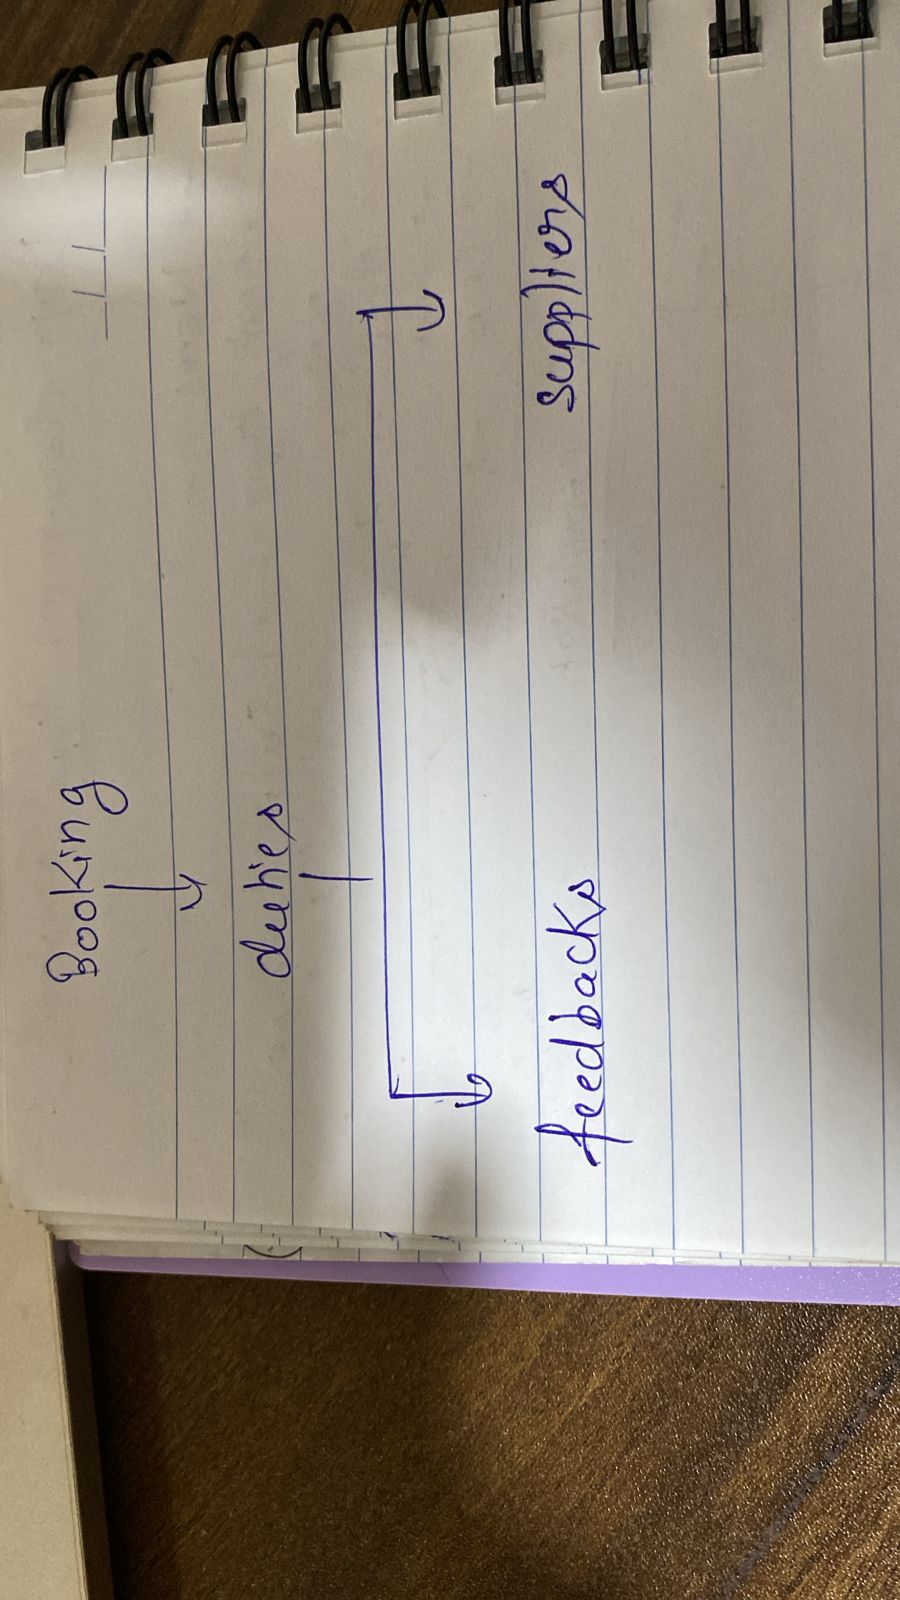 Booking
duties
feedbacks suppliers